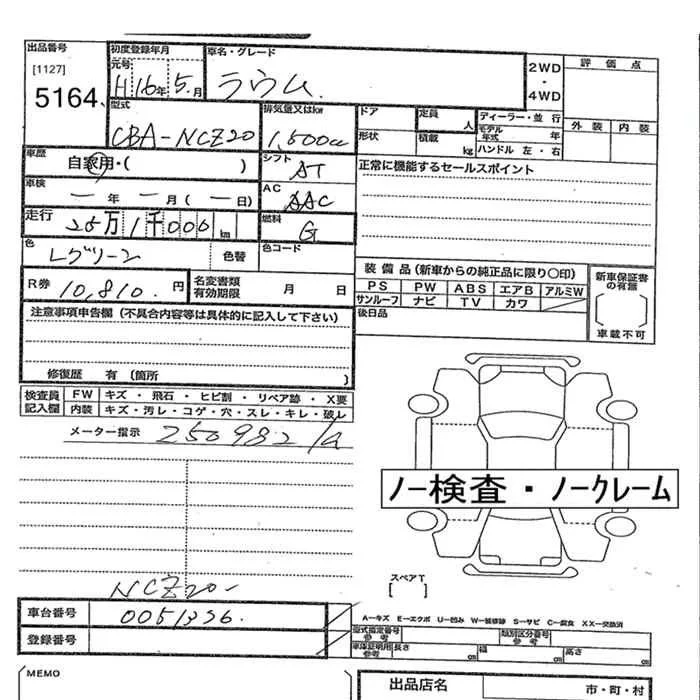 出品番号
[1127]
5164
初度登録年月
元号
H 16年 5月
車名・グレード
ラウム
2WD
・
4WD
評価点
外装 内装
型式
CBA-NCZ20
排気量又はkw
1,500cc
ドア
形状
定員 人
積載 kg
ディーラー・並行
モデル年式 年
ハンドル 左・右
車歴
自家用・( )
シフト
AT
正常に機能するセールスポイント
車検
― 年 ― 月 (― 日)
AC
AAC
走行
25万1千000 km
燃料
G
色
Lグリーン
色替
色コード
装備品(新車からの純正品に限り〇印)
PS PW ABS エアB アルミW
サンルーフ ナビ TV カワ
新車保証書の有無
車載不可
後日品
R券
10,810 円
名変書類有効期限 月 日
注意事項申告欄(不具合内容等は具体的に記入して下さい)
修復歴 有(箇所 )
検査員記入欄
FW キズ・飛石・ヒビ割・リペア跡・X要
内装 キズ・汚レ・コゲ・穴・スレ・キレ・破レ
メーター指示 250982
ノー検査・ノークレーム
スペアT
[ ]
NCZ20-
車台番号
0051356
登録番号
A-キズ E-エクボ U-凹み W-補修跡 S-サビ C-腐食 XX-交換済
型式指定番号参考
類別区分番号参考
車庫証明用参考 長さ cm 幅 cm 高さ cm
MEMO
出品店名
市・町・村